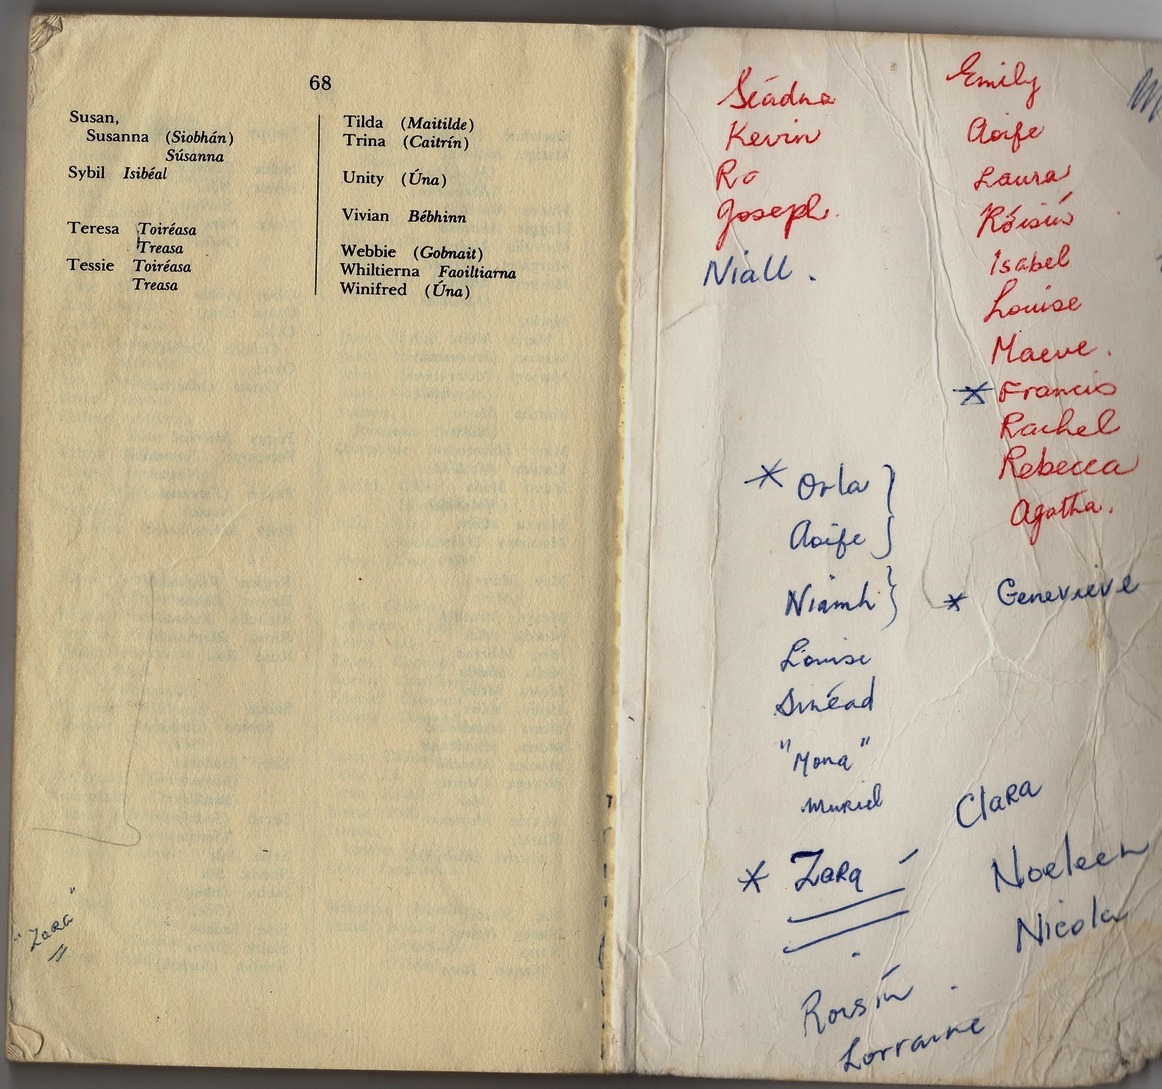 68
Susan,
Susanna (Siobhán)
Súsanna
Sybil Isibéal
Teresa Toiréasa
Treasa
Tessie Toiréasa
Treasa
Tilda (Maitilde)
Trina (Caitrín)
Unity (Úna)
Vivian Bébhinn
Webbie (Gobnait)
Whiltierna Faoiltiarna
Winifred (Úna)
"Zara"
Séadna
Kevin
Ro
Joseph.
Niall.
* Orla
Aoife
Niamh
Louise
Sinéad
"Mona"
Muriel
* Zara
Roisín
Lorraine
Emily
Aoife
Laura
Róisín
Isabel
Louise
Maeve.
* Francis
Rachel
Rebecca
Agatha.
* Genevieve
Clara
Noeleen
Nicola